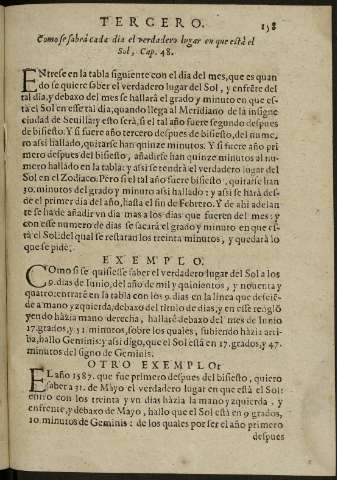 TERCERO.
158
Como se sabrá cada dia el verdadero lugar en que está el
Sol, Cap. 48.
ENtrese en la tabla siguiente con el dia del mes, que es quan
do se quiere saber el verdadero lugar del Sol, y enfrẽte del
tal dia, y debaxo del mes se hallará el grado y minuto en que es-
tá el Sol en esse tal dia, quando llega al Meridiano de la insigne
ciudad de Seuilla; esto será, si el tal año fuere segundo despues
de bisiesto. Y si fuere año tercero despues de bisiesto, del nume,
ro assi hallado, quitarse han quinze minutos. Y si fuere año pri
mero despues del bisiesto, añadirse han quinze minutos al nu-
mero hallado en la tabla: y assi se tendrá el verdadero lugar del
Sol en el Zodiaco. Pero si el tal año fuere bisiesto, quitarse han
30. minutos del grado y minuto assi hallado: y assi se hará des-
de el primer dia del año, hasta el fin de Febrero. Y de ahi adelan
te se ha de añadir vn dia mas a los dias que fueren del mes: y
con este numero de dias se sacará el grado y minuto en que es-
tá el Sol: del qual se restaran los treinta minutos, y quedará lo
que se pide.
EXEMPLO.
COmo si se quisiesse saber el verdadero lugar del Sol a los
9. dias de Iunio, del año de mil y quinientos, y nouenta y
quatro: entraré en la tabla con los 9. dias en la linea que desciẽ-
de a mano yzquierda, debaxo del titulo de dias; y en esse renglõ
yendo hàzia mano derecha, hallaré debaxo del mes de Iunio
17. grados, y 51. minutos, sobre los quales, subiendo hàzia arri-
ba, hallo Geminis: y assi digo, que el Sol está en 17. grados, y 47.
minutos del signo de Geminis.
OTRO EXEMPLO:
EL año 1587. que fue primero despues del bisiesto, quiero
saber a 31. de Mayo el verdadero lugar en que está el Sol:
entro con los treinta y vn dias hàzia la mano yzquierda, y
enfrente, y debaxo de Mayo, hallo que el Sol está en 9. grados,
10. minutos de Geminis: de los quales por ser el año primero
despues